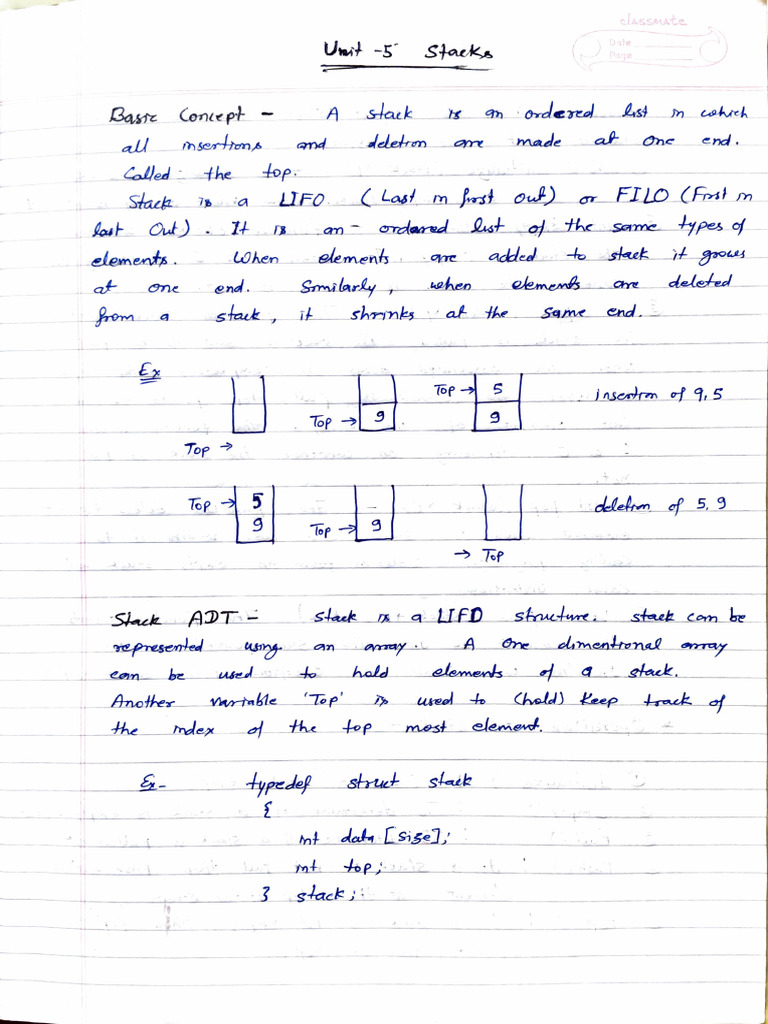 classmate
Date
Page
Unit -5 Stacks
Basic Concept - A stack is an ordered list in which
all insertions and deletion are made at one end.
Called the top.
Stack is a LIFO (Last in first out) or FILO (First in
last Out). It is an - ordered list of the same types of
elements. When elements are added to stack it grows
at one end. Similarly, when elements are deleted
from a stack, it shrinks at the same end.
Ex
Top → 5 insertion of 9,5
Top → 9 9
Top →
Top → 5 deletion of 5,9
9 Top → 9
→ Top
Stack ADT - Stack is a LIFO structure. stack can be
represented using an array. A one dimentional array
can be used to hold elements of a stack.
Another variable 'Top' is used to (hold) keep track of
the index of the top most element.
Ex- typedef struct stack
{
int data [size];
int top;
} stack;